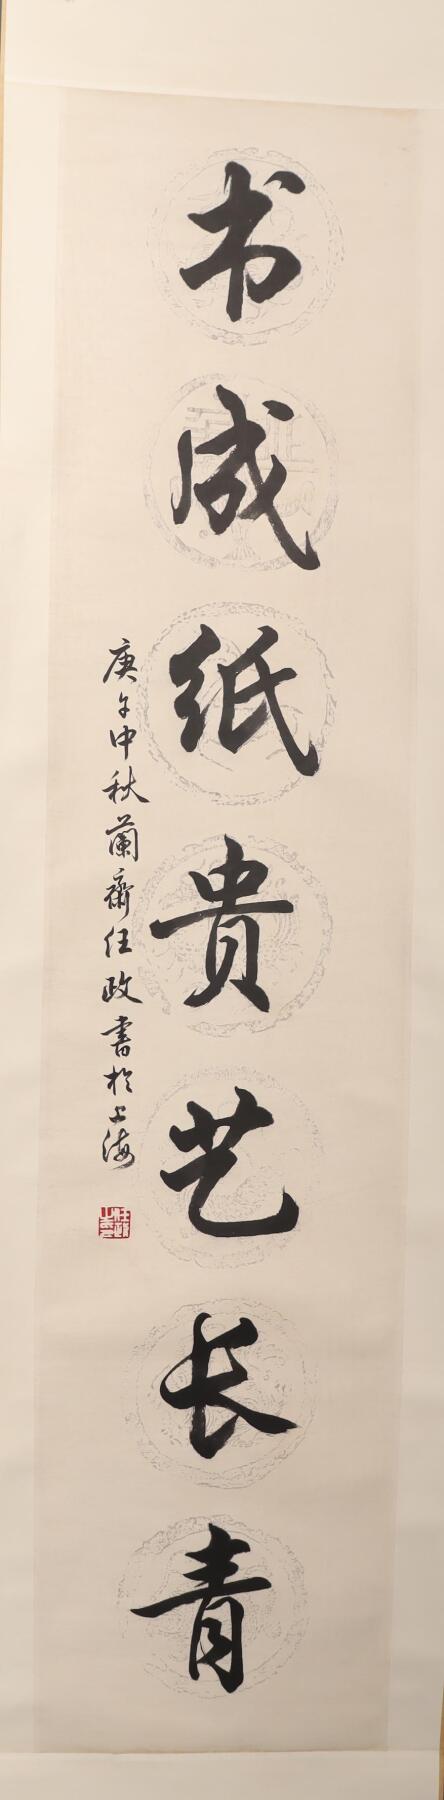 书成纸贵艺长青
庚午中秋蘭齋任政書於上海